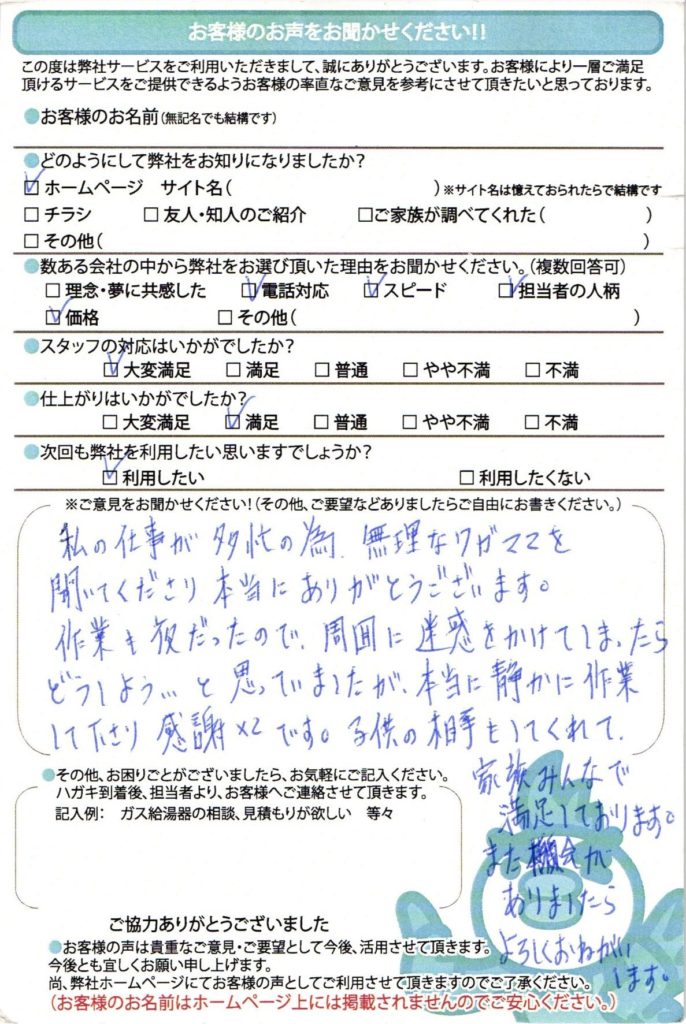 お客様のお声をお聞かせください!!
この度は弊社サービスをご利用いただきまして、誠にありがとうございます。お客様により一層ご満足
頂けるサービスをご提供できるようお客様の率直なご意見を参考にさせて頂きたいと思っております。
●お客様のお名前(無記名でも結構です)
●どのようにして弊社をお知りになりましたか?
☑ホームページ サイト名( )※サイト名は憶えておられたらで結構です
□チラシ □友人・知人のご紹介 □ご家族が調べてくれた( )
□その他( )
●数ある会社の中から弊社をお選び頂いた理由をお聞かせください。(複数回答可)
□理念・夢に共感した ☑電話対応 ☑スピード ☑担当者の人柄
☑価格 □その他( )
●スタッフの対応はいかがでしたか?
☑大変満足 □満足 □普通 □やや不満 □不満
●仕上がりはいかがでしたか?
□大変満足 ☑満足 □普通 □やや不満 □不満
●次回も弊社を利用したい思いますでしょうか?
☑利用したい □利用したくない
※ご意見をお聞かせください!(その他、ご要望などありましたらご自由にお書きください。)
私の仕事が多忙の為、無理なワガママを
聞いてくださり本当にありがとうございます。
作業も夜だったので、周囲に迷惑をかけてしまったら
どうしよう…と思っていましたが、本当に静かに作業
して下さり感謝×2です。子供の相手もしてくれて、
家族みんなで
満足しております。
また機会が
ありましたら
よろしくおねがい
します。
●その他、お困りごとがございましたら、お気軽にご記入ください。
ハガキ到着後、担当者より、お客様へご連絡させて頂きます。
記入例: ガス給湯器の相談、見積もりが欲しい 等々
ご協力ありがとうございました
●お客様の声は貴重なご意見・ご要望として今後、活用させて頂きます。
今後とも宜しくお願い申し上げます。
尚、弊社ホームページにてお客様の声としてご利用させて頂きますのでご了承ください。
(お客様のお名前はホームページ上には掲載されませんのでご安心ください。)